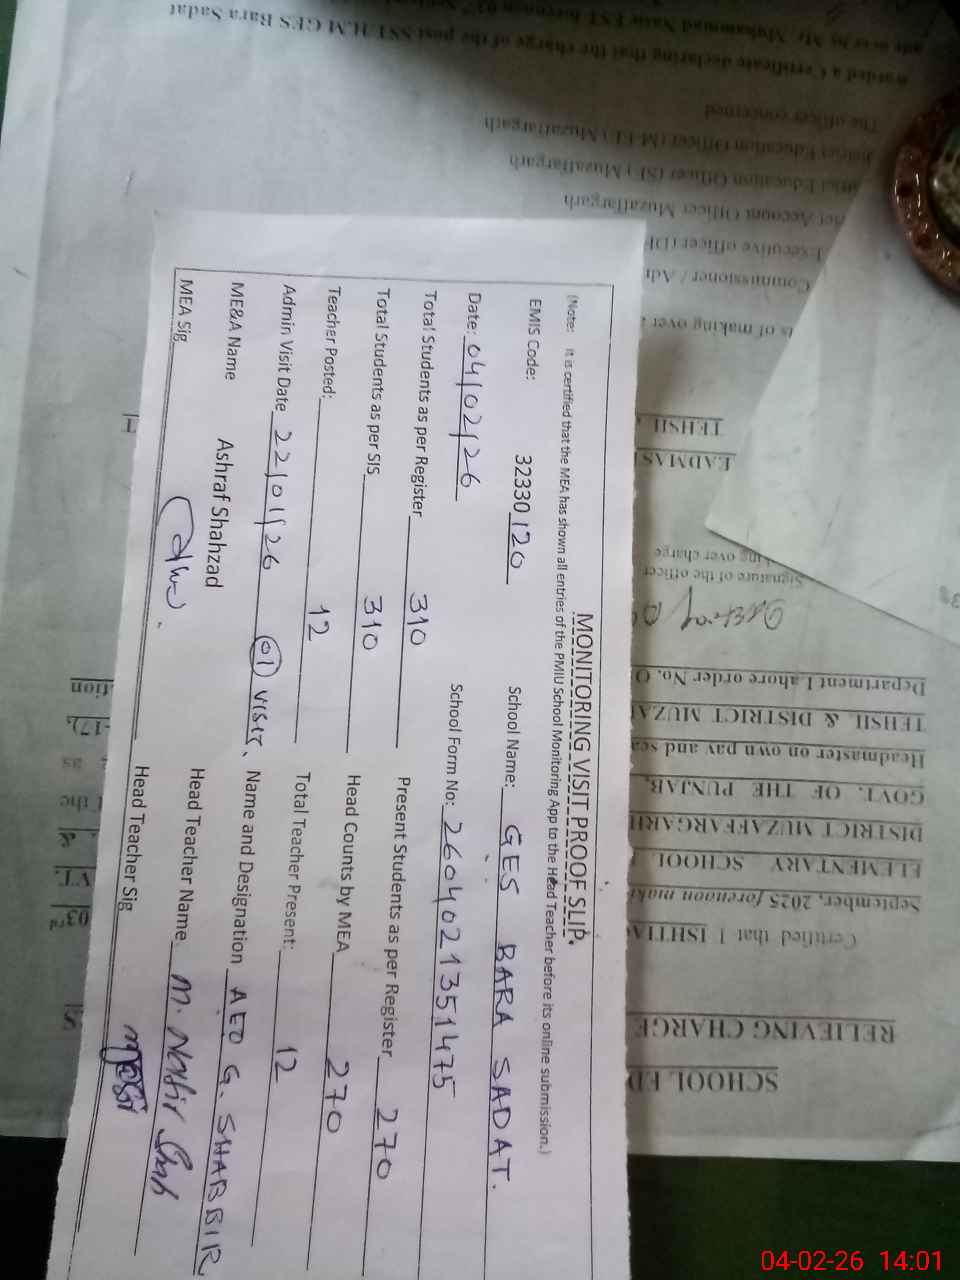 MONITORING VISIT PROOF SLIP.
(Note: It is certified that the MEA has shown all entries of the PMIU School Monitoring App to the Head Teacher before its online submission.)
EMIS Code: 32330120 School Name: GES BARA SADAT.
Date: 04/02/26 School Form No: 2604021351475
Total Students as per Register 310 Present Students as per Register 270
Total Students as per SIS 310 Head Counts by MEA 270
Teacher Posted: 12 Total Teacher Present: 12
Admin Visit Date 22/01/26 01 visit, Name and Designation AEO G. SHABBIR
ME&A Name Ashraf Shahzad Head Teacher Name M. Nasir Shah
MEA Sig Head Teacher Sig
SCHOOL ED
RELIEVING CHARGE
Certified that I ISHTIA
September, 2025 forenoon maki
03rd
ELEMENTARY SCHOOL
VT.
DISTRICT MUZAFFARGARH
&
GOVT. OF THE PUNJAB,
the
Headmaster on own pay and sca
as
TEHSIL & DISTRICT MUZA
-17),
Department Lahore order No. O
tion
Signature of the officer
king over charge
EADMAS
TEHSIL
ts of making over
Commissioner / Ad
Executive officer (D
Account Officer Muzaffargarh
Education Officer (SE) Muzaffargarh
Education Officer (M-EE) Muzaffargarh
The officer concerned
warded a Certificate declaring that the charge of the post SST H.M GES Bara Sadat
by Mr. Muhammad Nasir EST forenoon 03rd
04-02-26 14:01